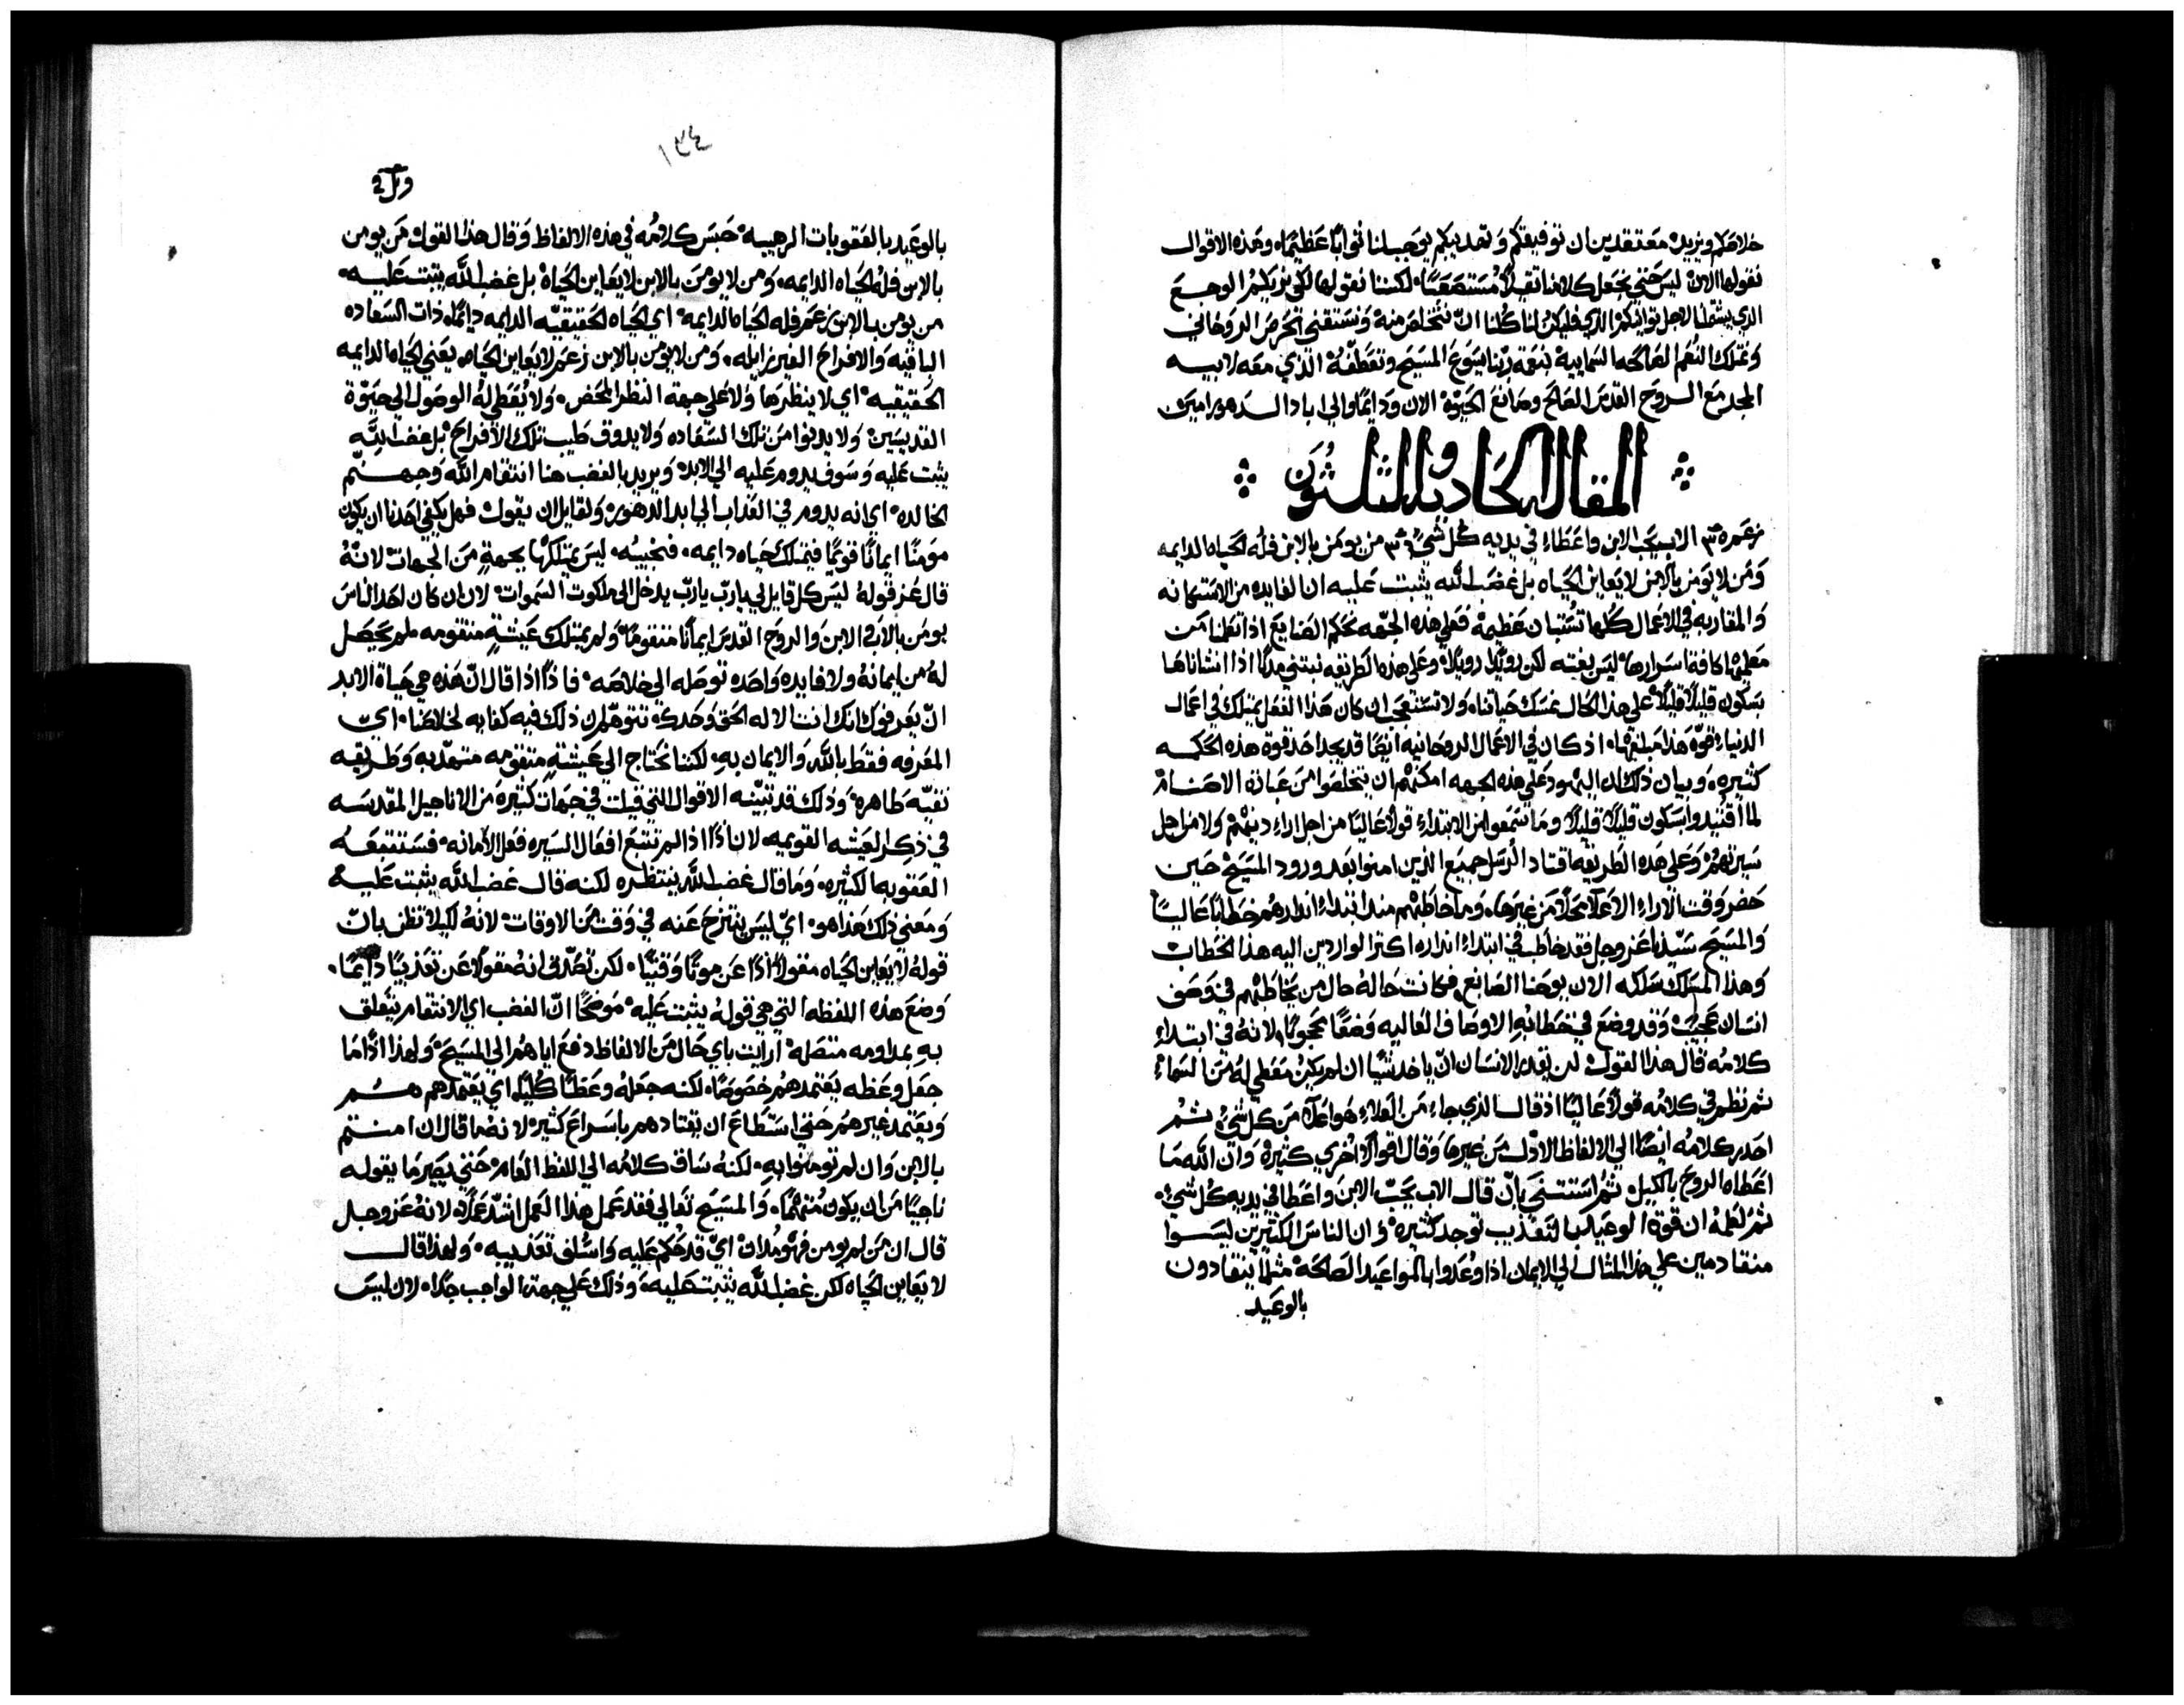 خلاصكم ونريده معتقدين ان توفيقكم وتهذيبكم يوجب لنا ثوابًا عظيمًا، وهذه الاقوال
نقولها الان ليس حتي نجعل كلامنا ثقيلاً مستصعبًا، لكننا نقولها لكي نريكم الوجع
الذي يشملنا لاجل توانيكم الذي فليكن لنا كلنا ان نتخلص منه ونستقني الحرص الروحاني
ونمتلك النعم الصالحه السمايية بنعمة ربنا يسوع المسيح وتعطفه الذي معه لابيه
المجد مع الروح القدس الصالح وصانع الحيوة الان ودايمًا والي اباد الدهور امين
المقال الحادي والثلثون
الاب يحب الابن واعطاه في يديه كل شي من يومن بالابن فله الحياه الدايمه
ومن لا يومن بالابن لا يعاين الحياه بل غضب الله يثبت عليه ان الفايده من الاستهانه
والمقاربه في الاعمال كلها تستبان عظيمة فعلي هذه الجهه نحكم الصنايع اذا تعلمنا من
معلمها كافة اسرارها ليس بغته لكن رويدًا رويدًا، وعلي هذه الطريقه نبتني مدنًا اذا انشاناها
بسكون قليلاً قليلاً علي هذا الحال نمسك حياتنا، ولا تستعجب ان كان هذا الفعل يمتلك في اعمال
الدنيا قوة هذا مبلغها، اذ كان في الاعمال الروحانيه ايضًا قد يجد احد قوة هذه الحكمه
كثيره، وبيان ذلك ان اليهود علي هذه الجهه امكنهم ان يتخلصوا من عبادة الاصنام
لما اقتيدوا بسكون قليلاً قليلاً وما سمعوا من الابتداء قولاً عاليًا من اجل اراء دينهم ولا من اجل
سيرتهم، وعلي هذه الطريقه اقتاد الرسل جميع الذين امنوا بعد ورود المسيح حين
حضر وقت الاراء الاعلا محلاً من غيرها، وما خاطبهم منذ ابتداء انذارهم خطابًا عاليًا
والمسيح سيدنا عز وجل فقد خاطب في ابتداء انذاره اكثر الواردين اليه هذا الخطاب
وهذا المسلك سلكه الان يوحنا الصابغ، فكانت حاله حال من يخاطبهم في وصف
انسان عجيب وقد وضع في خطابه الاوصاف العاليه وضعًا محجوبًا، لانه في ابتداء
كلامه قال هذا القول لن يقدر الانسان ان ياخذ شيًا ان لم يكن معطي له من السماء
ثم نظم في كلامه قولاً عاليًا اذ قال الذي جاء من العلاء هو اعلا من كل شي، ثم
احدر كلامه ايضًا الي الالفاظ الاذل من غيرها وقال اقوالاً اخري كثيرة وان الله ما
اعطاه الروح بالكيل ثم استثني بان قال الاب يحب الابن واعطا في يديه كل شي،
ثم لعلمه ان قوة الوعيد بالتعذيب توجد كثيرة، وان الناس الكثيرين ليسوا
منقادين علي هذا المثال الي الايمان اذا وعدوا بالمواعيد الصالحة مثلما ينقادون
بالوعيد
١٣٤
بالوعيد بالعقوبات الرهيبه، حبس كلامه في هذه الالفاظ وقال هذا القول من يومن
بالابن فله الحياه الدايمه، ومن لا يومن بالابن لا يعاين الحياة بل غضب الله يثبت عليه،
من يومن بالابن زعم فله الحياه الدايمه اي الحياه الحقيقيه الدايمه دايمًا، ذات السعاده
الباقيه والافراح الغير زايله، ومن لا يومن بالابن زعم لا يعاين الحياه يعني الحياه الدايمه
الحقيقيه اي لا ينظرها ولا علي جهة النظر المحض، ولا يُعطي له الوصول الي حيوة
القديسين ولا يدنوا من تلك السعاده ولا يدوق طيب تلك الافراح بل غضب الله
يثبت عليه وسوف يدوم عليه الي الابد، ويريد بالغضب هنا انتقام الله وجهنم
الخالده اي انه يدوم في العذاب الي ابد الدهور، ولقايل ان يقول فهل يكفي احدنا ان يكون
مومنًا ايمانًا قويمًا فيمتلك حياه دايمه، فنجيبه ليس يمتلكها بجهةٍ من الجهات لانه
قال عز قوله ليس كل قايل لي يارب يارب يدخل الي ملكوت السموات لان ان كان احد الناس
يومن بالاب والابن والروح القدس ايمانًا متقومًا ولم يمتلك عيشةٍ متقومه فلم يحصل
له من ايمانه ولا فايده واحده توصله الي خلاصه، فاذًا اذا قال ان هذه هي حياة الابد
ان يعرفوك انك انت الاله الحق وحدك نتوهم ان ذلك فيه كفايه لخلاصنا، اي
المعرفه فقط بالله والايمان به، لكننا نحتاج الي عيشةٍ متقومه متهذبه وطريقه
نقيه طاهره، وذلك قد تبينه الاقوال التي قيلت في جهات كثيرة من الاناجيل المقدسه
في ذكر العيشه القويمه، لان اذًا اذا لم نتبع افعال السيره فعل الأمانه فستتبعه
العقوبه الكثيره، وما قال غضب الله ينتظره لكنه قال غضب الله يثبت عليه
ومعني ذلك هذا هو اي ليس ينتزح عنه في وقت من الاوقات لانه لكيلا تظن بان
قوله لا يعاين الحياه مقولاً اذًا عن موتًا وقتيًا، لكن تصدق انه مقولاً عن تعذيبًا دايمًا،
وضع هذه اللفظه التي هي قوله يثبت عليه موضحًا ان الغضب اي الانتقام يتعلق
به بمداومه متصله ارايت باي حال من الالفاظ دفع اياهم الي المسيح، ولهذا اذًا ما
جعل وعظه يعتمدهم خصوصًا، لكنه جعله وعظًا كليًا اي يعتمدهم هم
ويعتمد غيرهم حتي استطاع ان يقتادهم باسراع كثير، لانه ما قال ان امنتم
بالابن وان لم تومنوا به، لكنه ساق كلامه الي اللفظ العام حتي يصير ما يقوله
ناجيًا من ان يكون متهمًا، والمسيح تعالي فقد عمل هذا العمل اشد عملاً، لانه عز وجل
قال ان من لم يومن فهو مدان اي قد حكم عليه واستلق تعذيبه، ولهذا قال
لا يعاين الحياه لكن غضب الله يثبت عليه، وذلك علي جهة الواجب جدًا، لان ليس